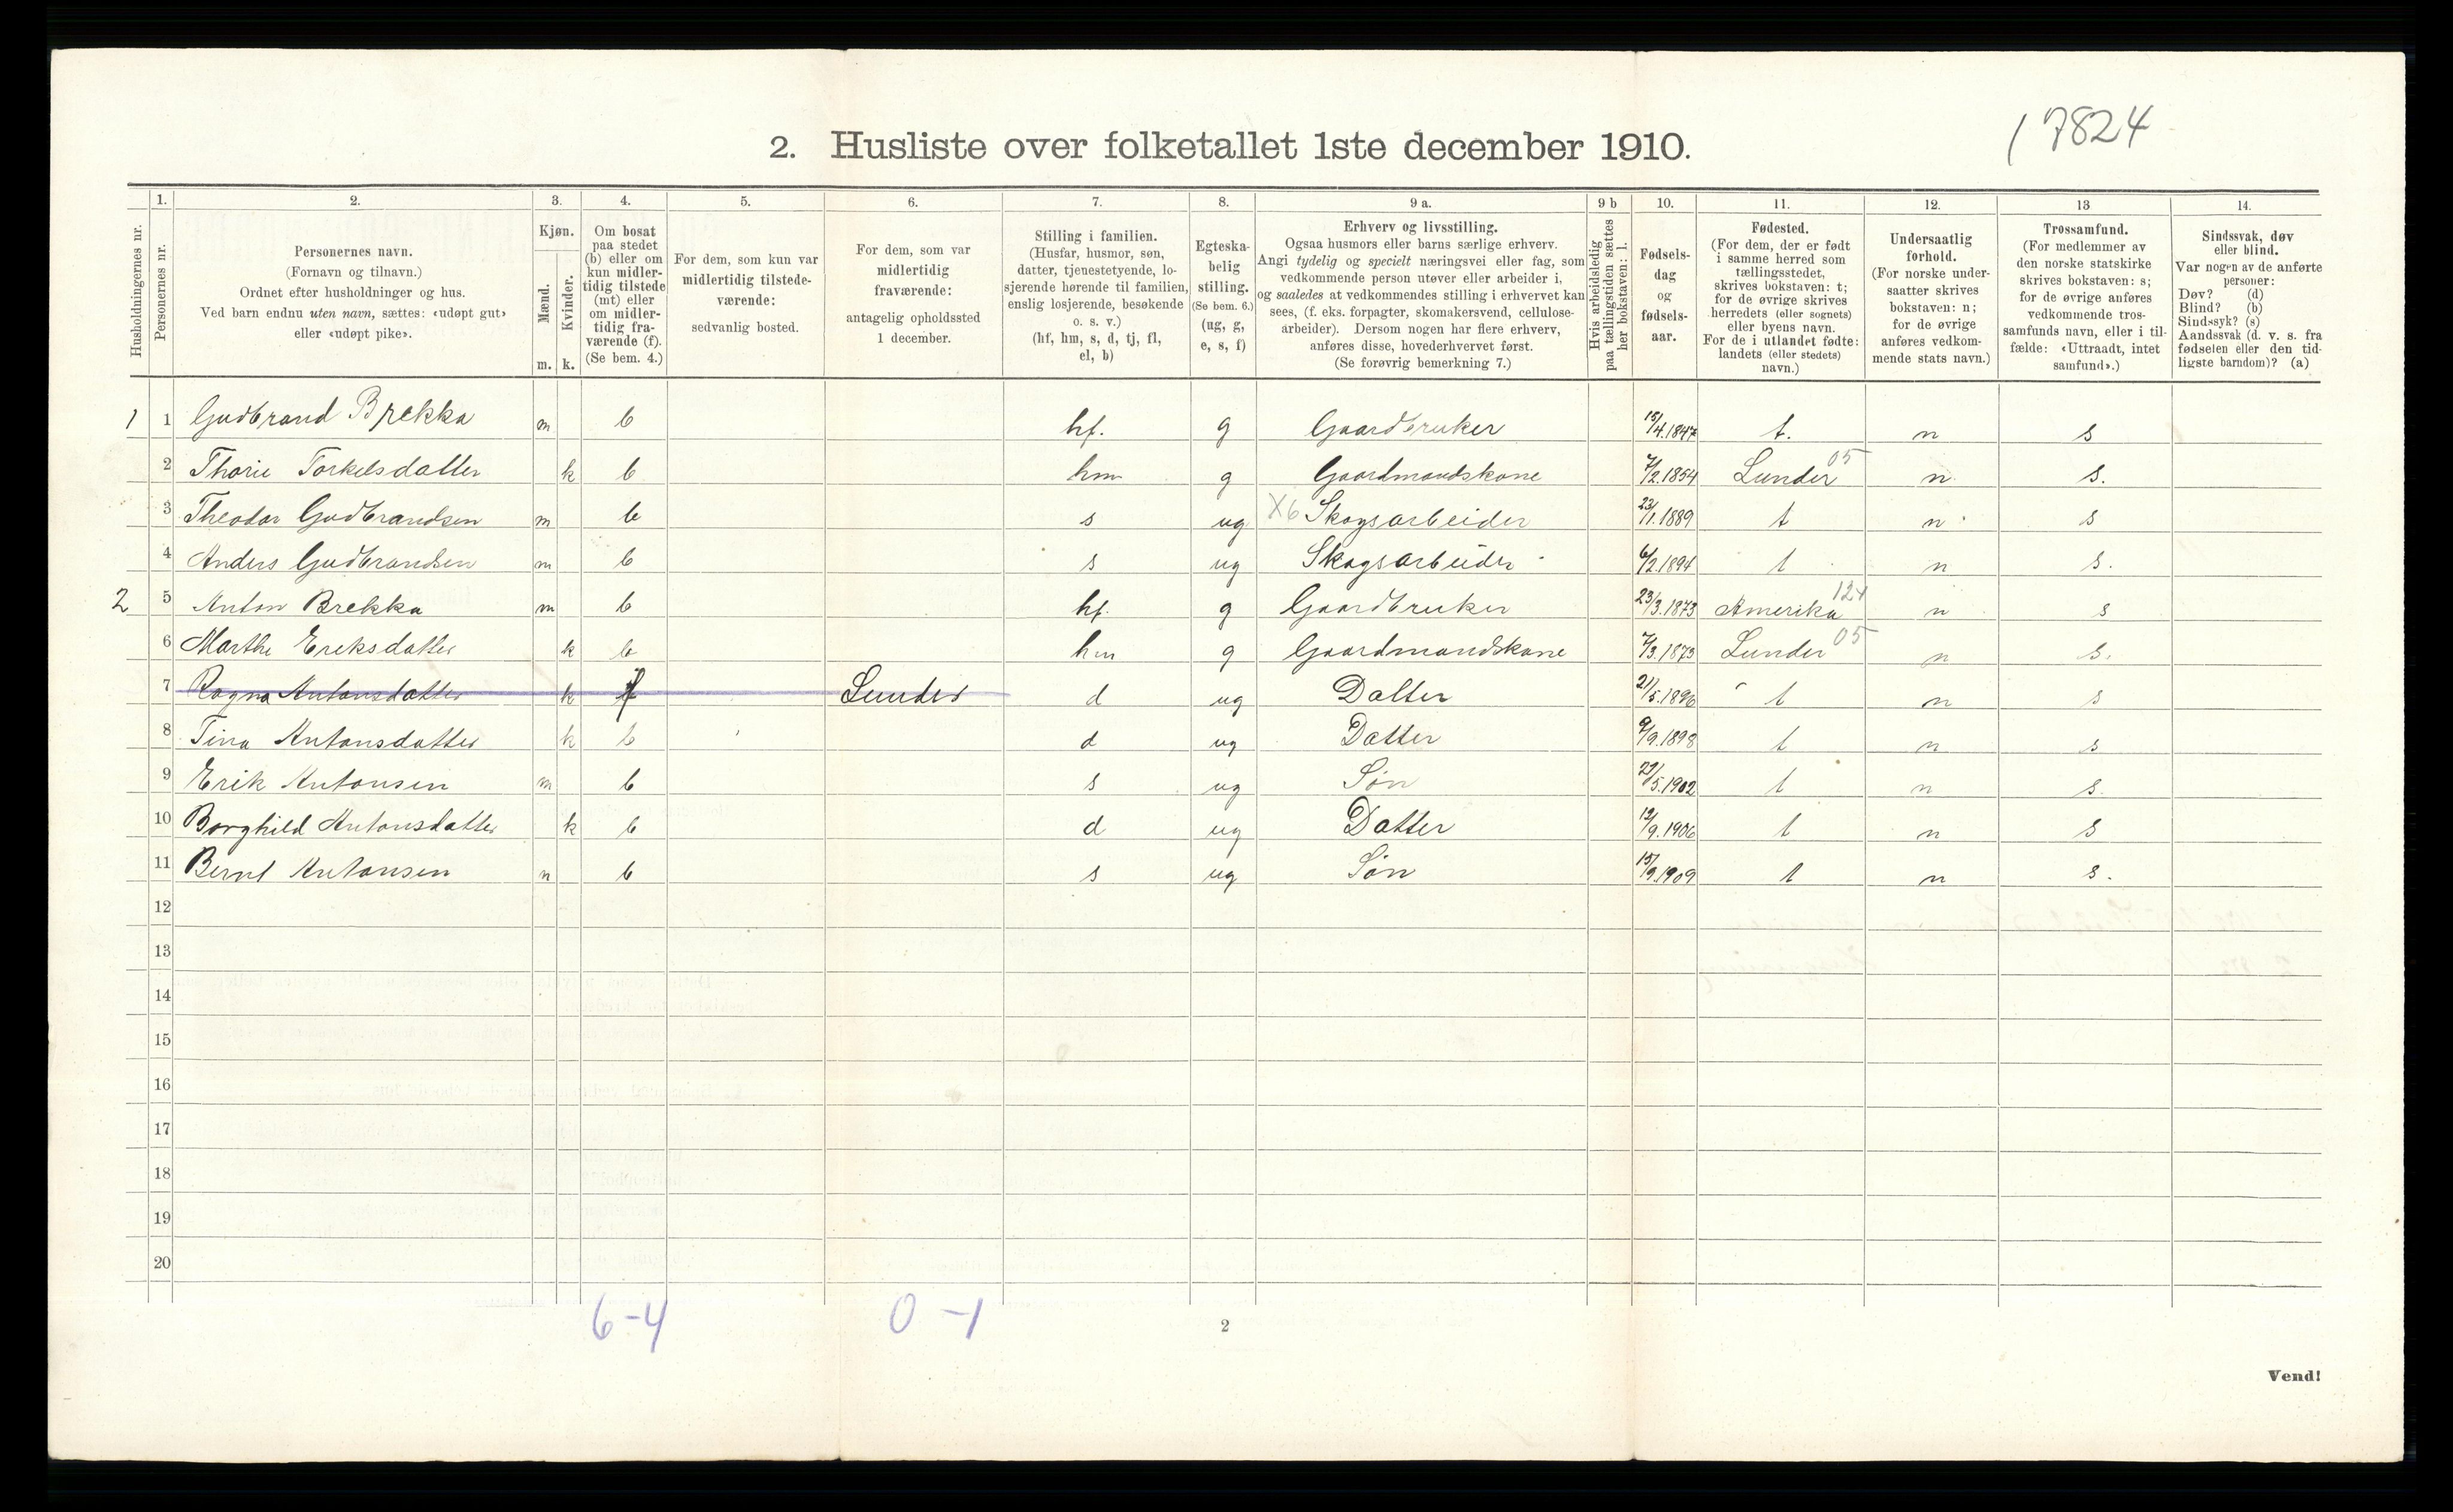 17824
2. Husliste over folketallet 1ste december 1910.
Husholdningernes nr.
1.
Personernes nr.
2.
Personernes navn.
(Fornavn og tilnavn.)
Ordnet efter husholdninger og hus.
Ved barn endnu uten navn, sættes: «udøpt gut»
eller «udøpt pike».
3.
Kjøn.
Mænd.
m.
Kvinder.
k.
4.
Om bosat
paa stedet
(b) eller om
kun midler-
tidig tilstede
(mt) eller
om midler-
tidig fra-
værende (f).
(Se bem. 4.)
5.
For dem, som kun var
midlertidig tilstede-
værende:
sedvanlig bosted.
6.
For dem, som var
midlertidig
fraværende:
antagelig opholdssted
1 december.
7.
Stilling i familien.
(Husfar, husmor, søn,
datter, tjenestetyende, lo-
sjerende hørende til familien,
enslig losjerende, besøkende
o. s. v.)
(hf, hm, s, d, tj, fl,
el, b)
8.
Egteska-
belig
stilling.
(Se bem. 6.)
(ug, g,
e, s, f)
9 a.
Erhverv og livsstilling.
Ogsaa husmors eller barns særlige erhverv.
Angi tydelig og specielt næringsvei eller fag, som
vedkommende person utøver eller arbeider i,
og saaledes at vedkommendes stilling i erhvervet kan
sees, (f. eks. forpagter, skomakersvend, cellulose-
arbeider). Dersom nogen har flere erhverv,
anføres disse, hovederhvervet først.
(Se forøvrig bemerkning 7.)
9 b
Hvis arbeidsledig
paa tællingstiden sættes
her bokstaven: l.
10.
Fødsels-
dag
og
fødsels-
aar.
11.
Fødested.
(For dem, der er født
i samme herred som
tællingsstedet,
skrives bokstaven: t;
for de øvrige skrives
herredets (eller sognets)
eller byens navn.
For de i utlandet fødte:
landets (eller stedets)
navn.)
12.
Undersaatlig
forhold.
(For norske under-
saatter skrives
bokstaven: n;
for de øvrige
anføres vedkom-
mende stats navn.)
13
Trossamfund.
(For medlemmer av
den norske statskirke
skrives bokstaven: s;
for de øvrige anføres
vedkommende tros-
samfunds navn, eller i til-
fælde: «Uttraadt, intet
samfund».)
14.
Sindssvak, døv
eller blind.
Var nogen av de anførte
personer:
Døv? (d)
Blind? (b)
Sindssyk? (s)
Aandssvak (d. v. s. fra
fødselen eller den tid-
ligste barndom)? (a)
1 1 Gudbrand Brekka m b hf. g Gaardbruker 15/4.1847 t. n s
2 Thorie Torkelsdatter k b hm g Gaardmandskone 7/2.1854 Lunder 05 n s.
3 Theodor Gudbrandsen m b s ug X6 Skogsarbeider 23/1.1889 t n s
4 Anders Gudbrandsen m b s ug Skogsarbeider 6/2.1894 t n s.
2 5 Anton Brekka m b hf. g Gaardbruker 23/3.1873 Amerika 124 n s
6 Marthe Eriksdatter k b hm g Gaardmandskone 7/3.1873 Lunder 05 n s.
7 Ragna Antonsdatter k f Lunder d ug Datter 21/5.1896 t n s
8 Tina Antonsdatter k b d ug Datter 9/9.1898 t n s
9 Erik Antonsen m b s ug Søn 29/5.1902 t n s.
10 Borghild Antonsdatter k b d ug Datter 12/9.1906 t n s
11 Bernt Antonsen m b s ug Søn 15/9.1909 t n s.
12
13
14
15
16
17
18
19
20
6-4 0-1
2
Vend!